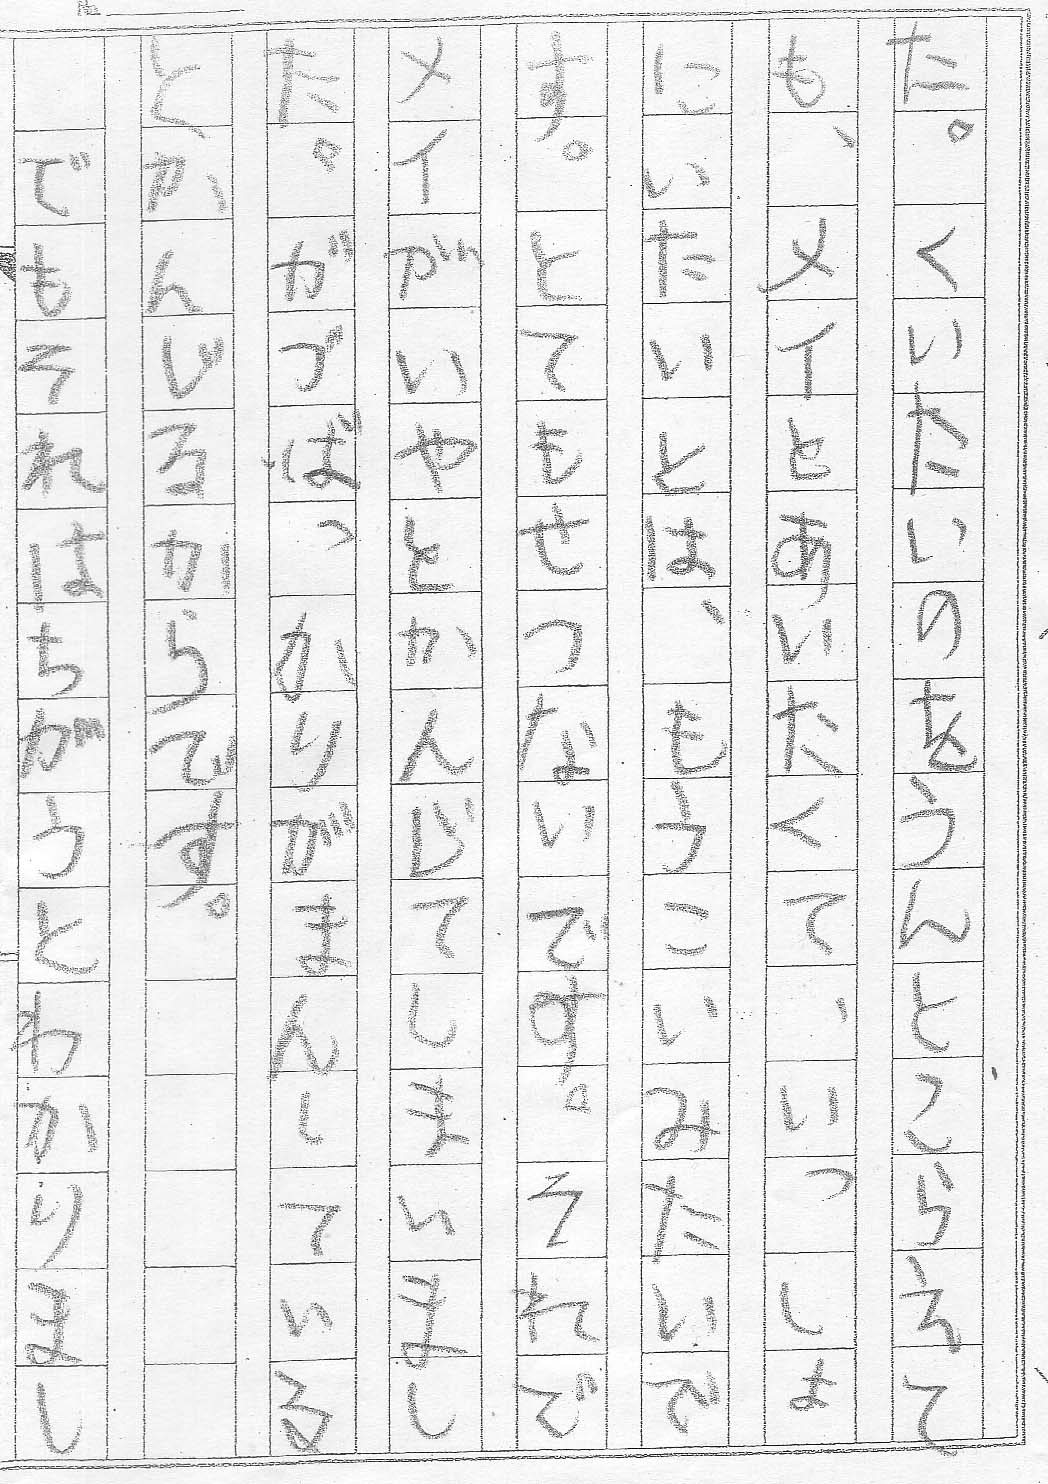 No.
た。くいたいのをうんとこらえて
も、メイとあいたくて、いっしょ
にいたいとは、もうこいみたいで
す。とてもせつないです。それで
メイがいやとかんじてしまいまし
た。がづばっかりがまんしている
とかんじるからです。
でもそれはちがうとわかりまし